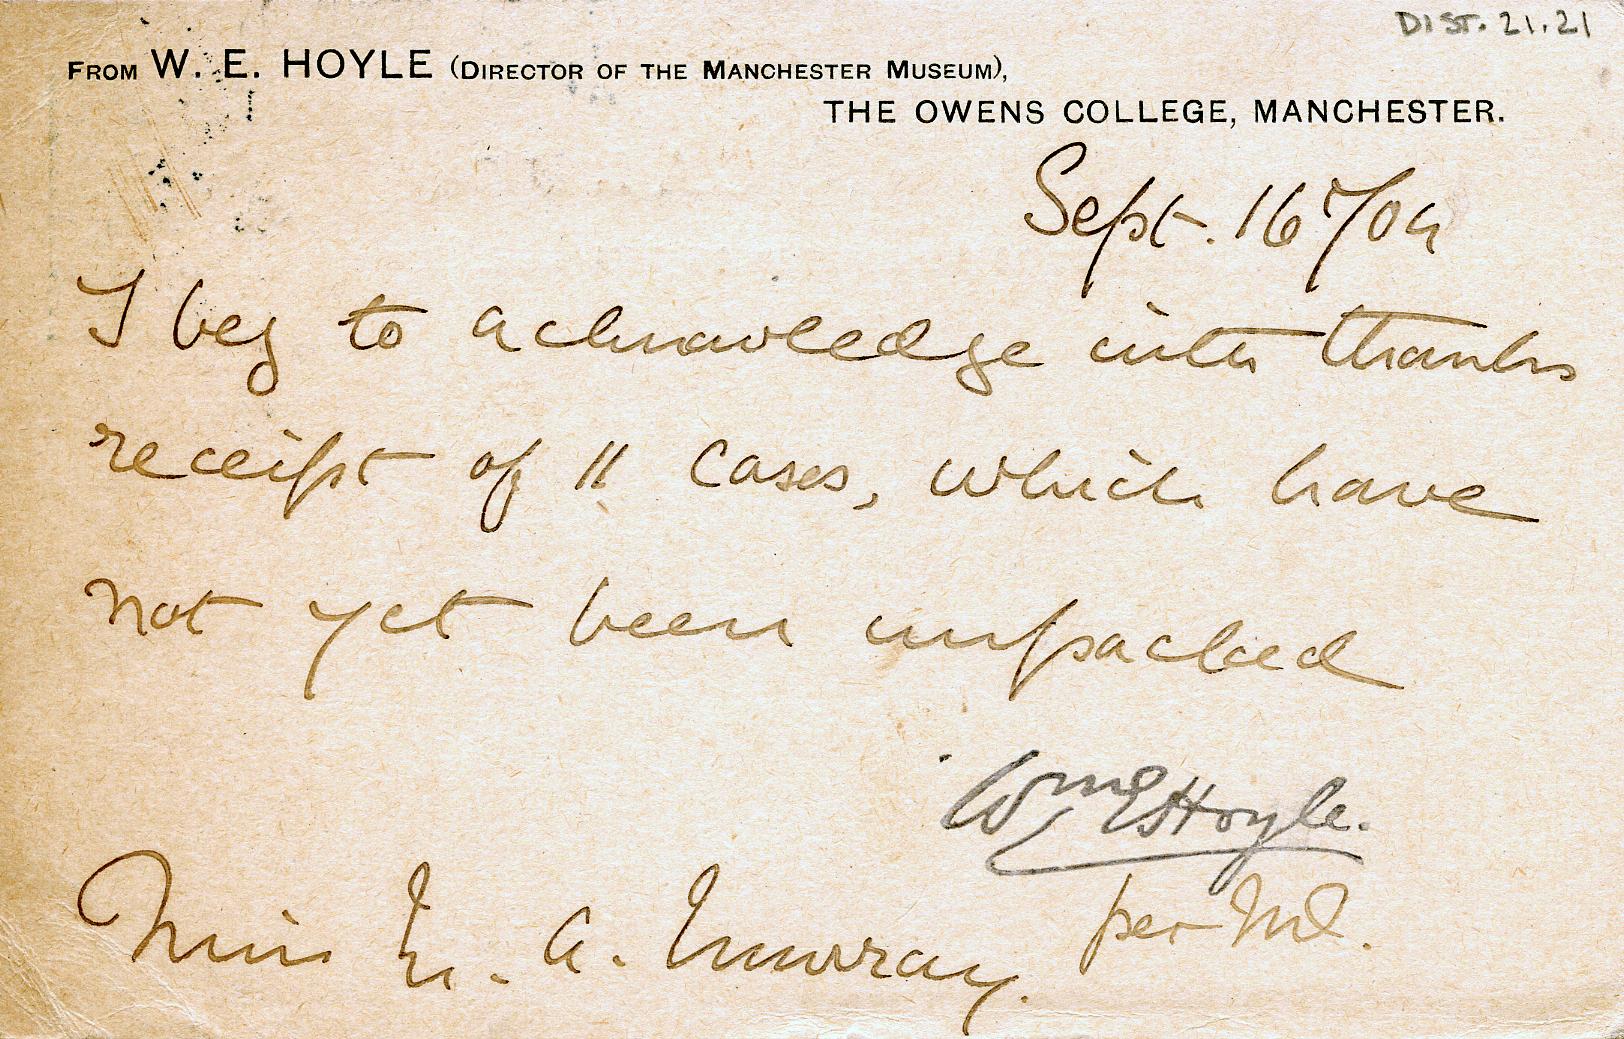 DIST. 21.21
FROM W. E. HOYLE (DIRECTOR OF THE MANCHESTER MUSEUM),
THE OWENS COLLEGE, MANCHESTER.
Sept. 16th/04
I beg to acknowledge with thanks
receipt of 11 cases, which have
not yet been unpacked
Wm E Hoyle.
per
Miss M. A. Murray.